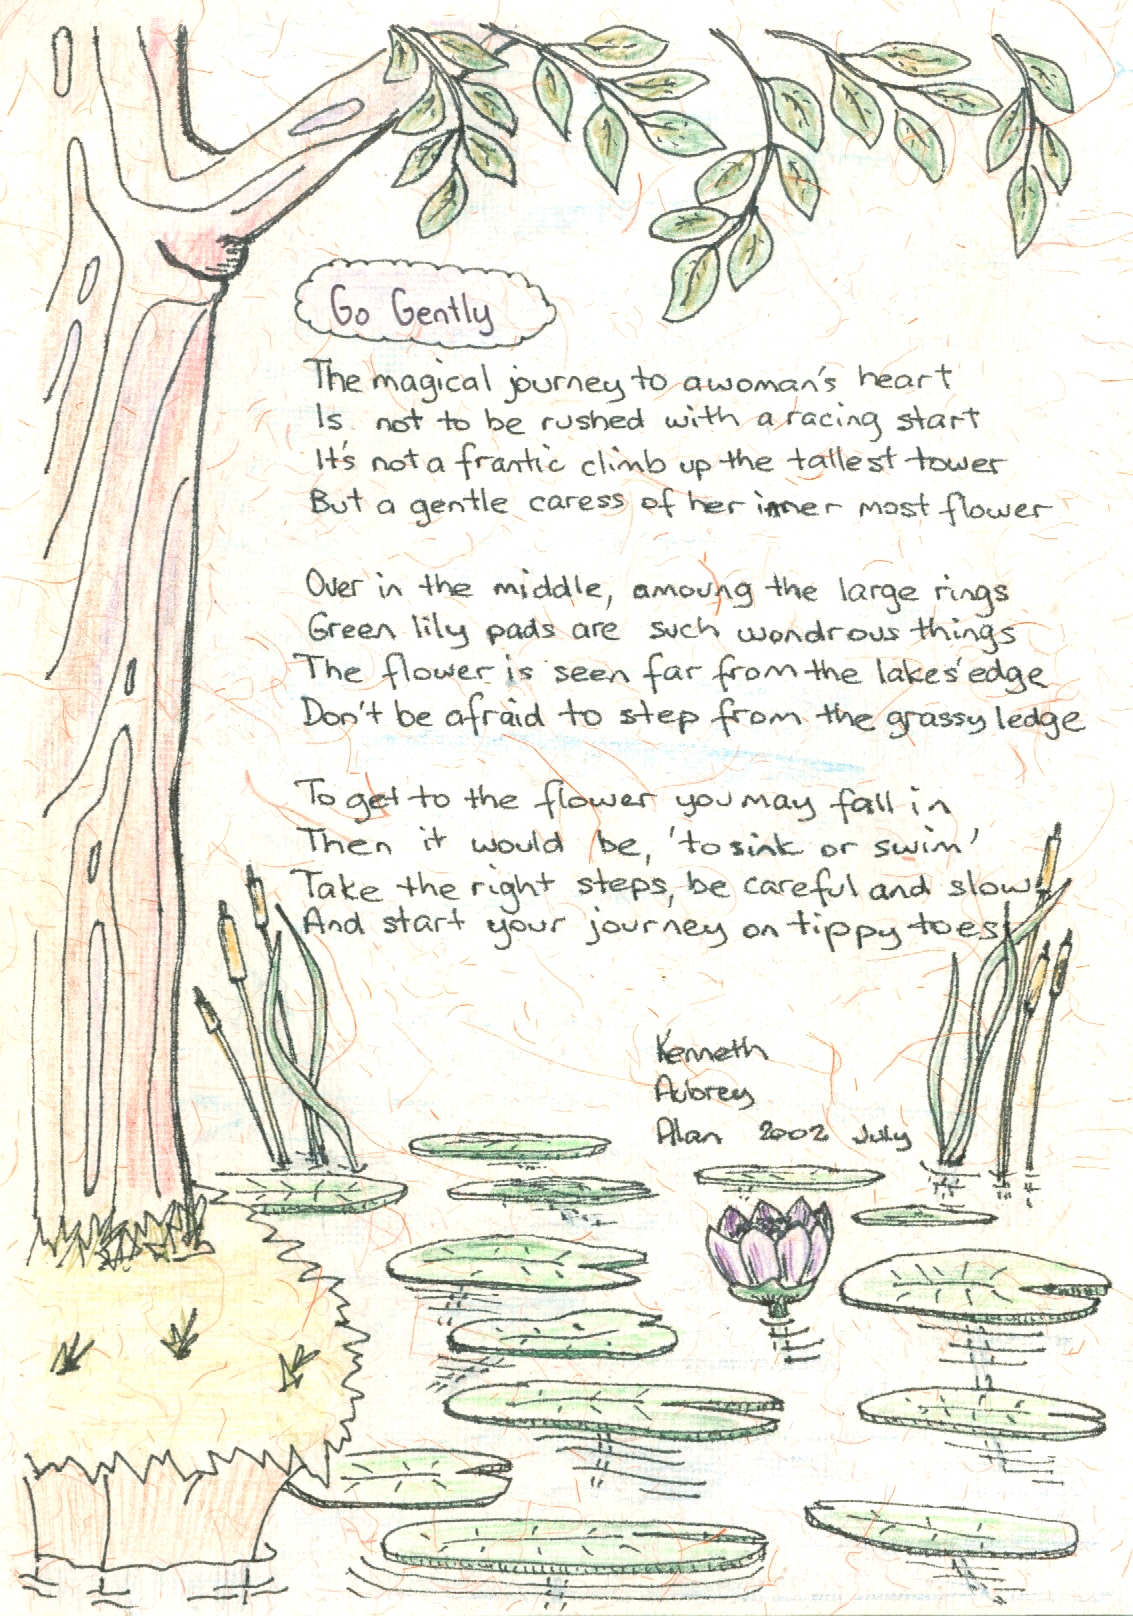 Go Gently
The magical journey to a woman's heart
Is not to be rushed with a racing start
It's not a frantic climb up the tallest tower
But a gentle caress of her inner most flower
Over in the middle, amoung the large rings
Green lily pads are such wondrous things
The flower is seen far from the lakes' edge
Don't be afraid to step from the grassy ledge
To get to the flower you may fall in
Then it would be, 'to sink or swim'
Take the right steps, be careful and slow
And start your journey on tippy toes
Kenneth
Aubrey
Alan 2002 July